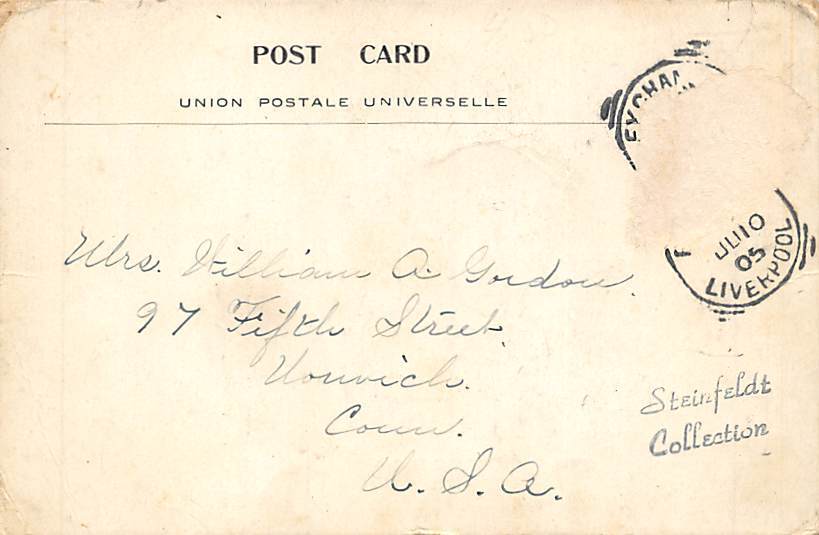 POST CARD
UNION POSTALE UNIVERSELLE
EXCHAN
JU 10
05
LIVERPOOL
Mrs. William A. Gordon.
97 Fifth Street,
Norwich.
Conn.
U. S. A.
Steinfeldt
Collection